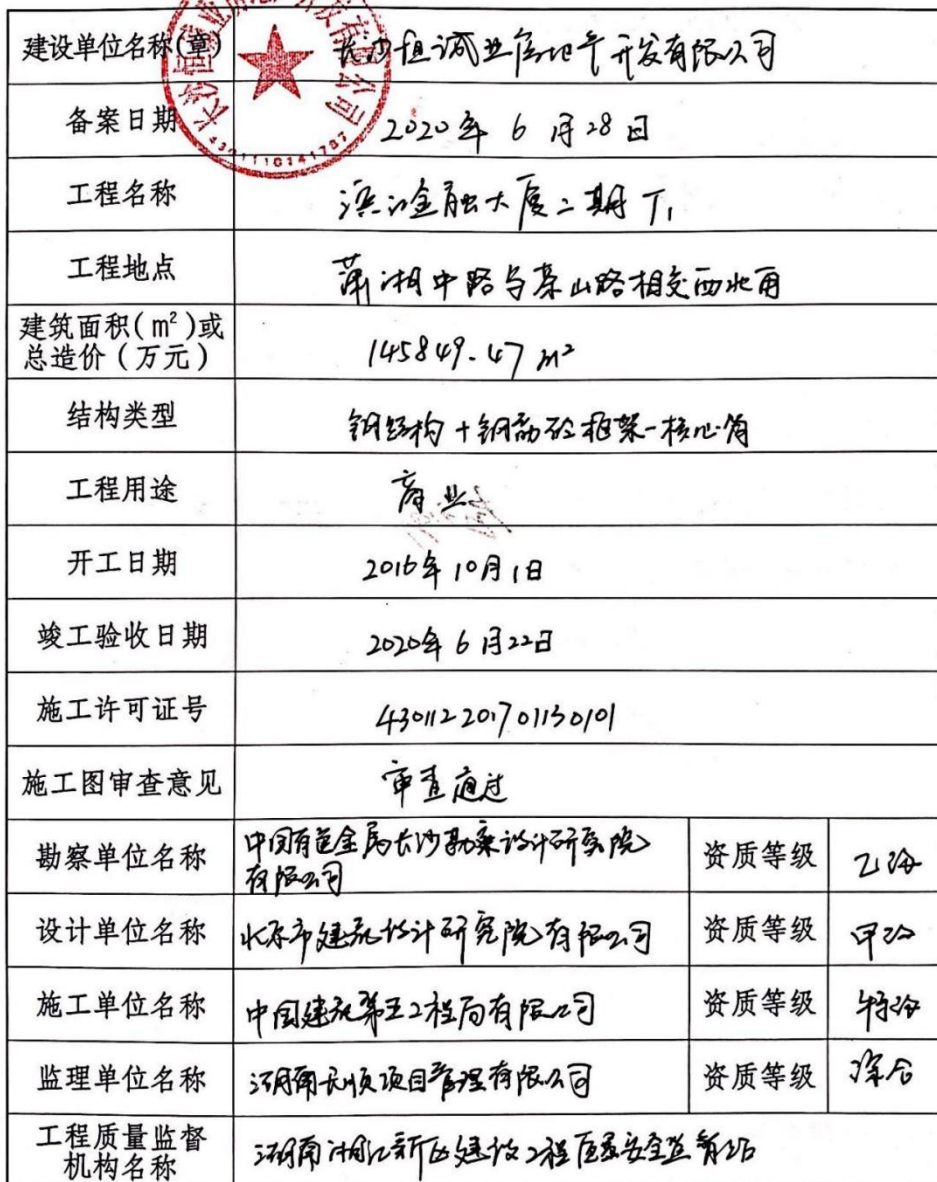 建设单位名称(章) 长沙恒诚业房地产开发有限公司
备案日期 2020年 6 月 28 日
工程名称 滨江金融大厦二期 T1
工程地点 潇湘中路与茶山路相交西北角
建筑面积(m²)或
总造价(万元) 145849.47 m²
结构类型 钢结构+钢筋砼框架-核心筒
工程用途 商业
开工日期 2016年10月1日
竣工验收日期 2020年 6 月22日
施工许可证号 430112201701130101
施工图审查意见 审查通过
勘察单位名称 中国有色金属长沙勘察设计研究院
有限公司 资质等级 乙级
设计单位名称 北京市建筑设计研究院有限公司 资质等级 甲级
施工单位名称 中国建筑第五工程局有限公司 资质等级 特级
监理单位名称 湖南长顺项目管理有限公司 资质等级 综合
工程质量监督
机构名称 湖南湘江新区建设工程质量安全监督站